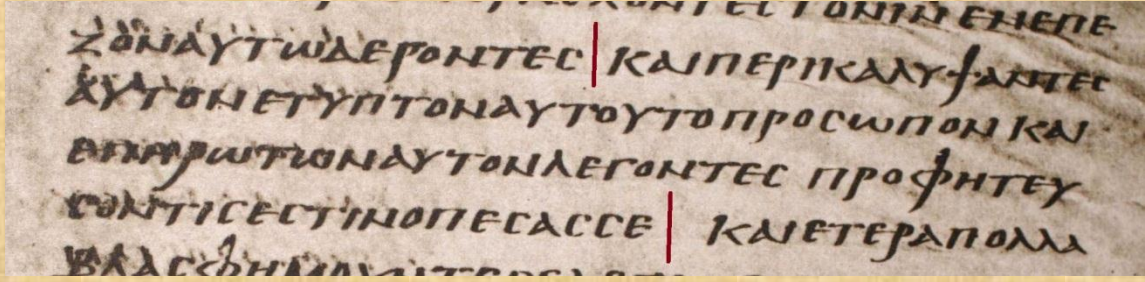 ΟΝΤΕϹ ΤΟΝΙΝ ΕΝΕΠΕ
ΖΟΝΑΥΤΩΔΕΡΟΝΤΕϹ ΚΑΙΠΕΡΙΚΑΛΥΨΑΝΤΕϹ
ΑΥΤΟΝΕΤΥΠΤΟΝΑΥΤΟΥΤΟΠΡΟϹΩΠΟΝ ΚΑΙ
ΕΠΗΡΩΤΩΝΑΥΤΟΝΛΕΓΟΝΤΕϹ ΠΡΟΦΗΤΕΥ
ϹΟΝΤΙϹΕϹΤΙΝΟΠΕϹΑϹϹΕ ΚΑΙΕΤΕΡΑΠΟΛΛΑ